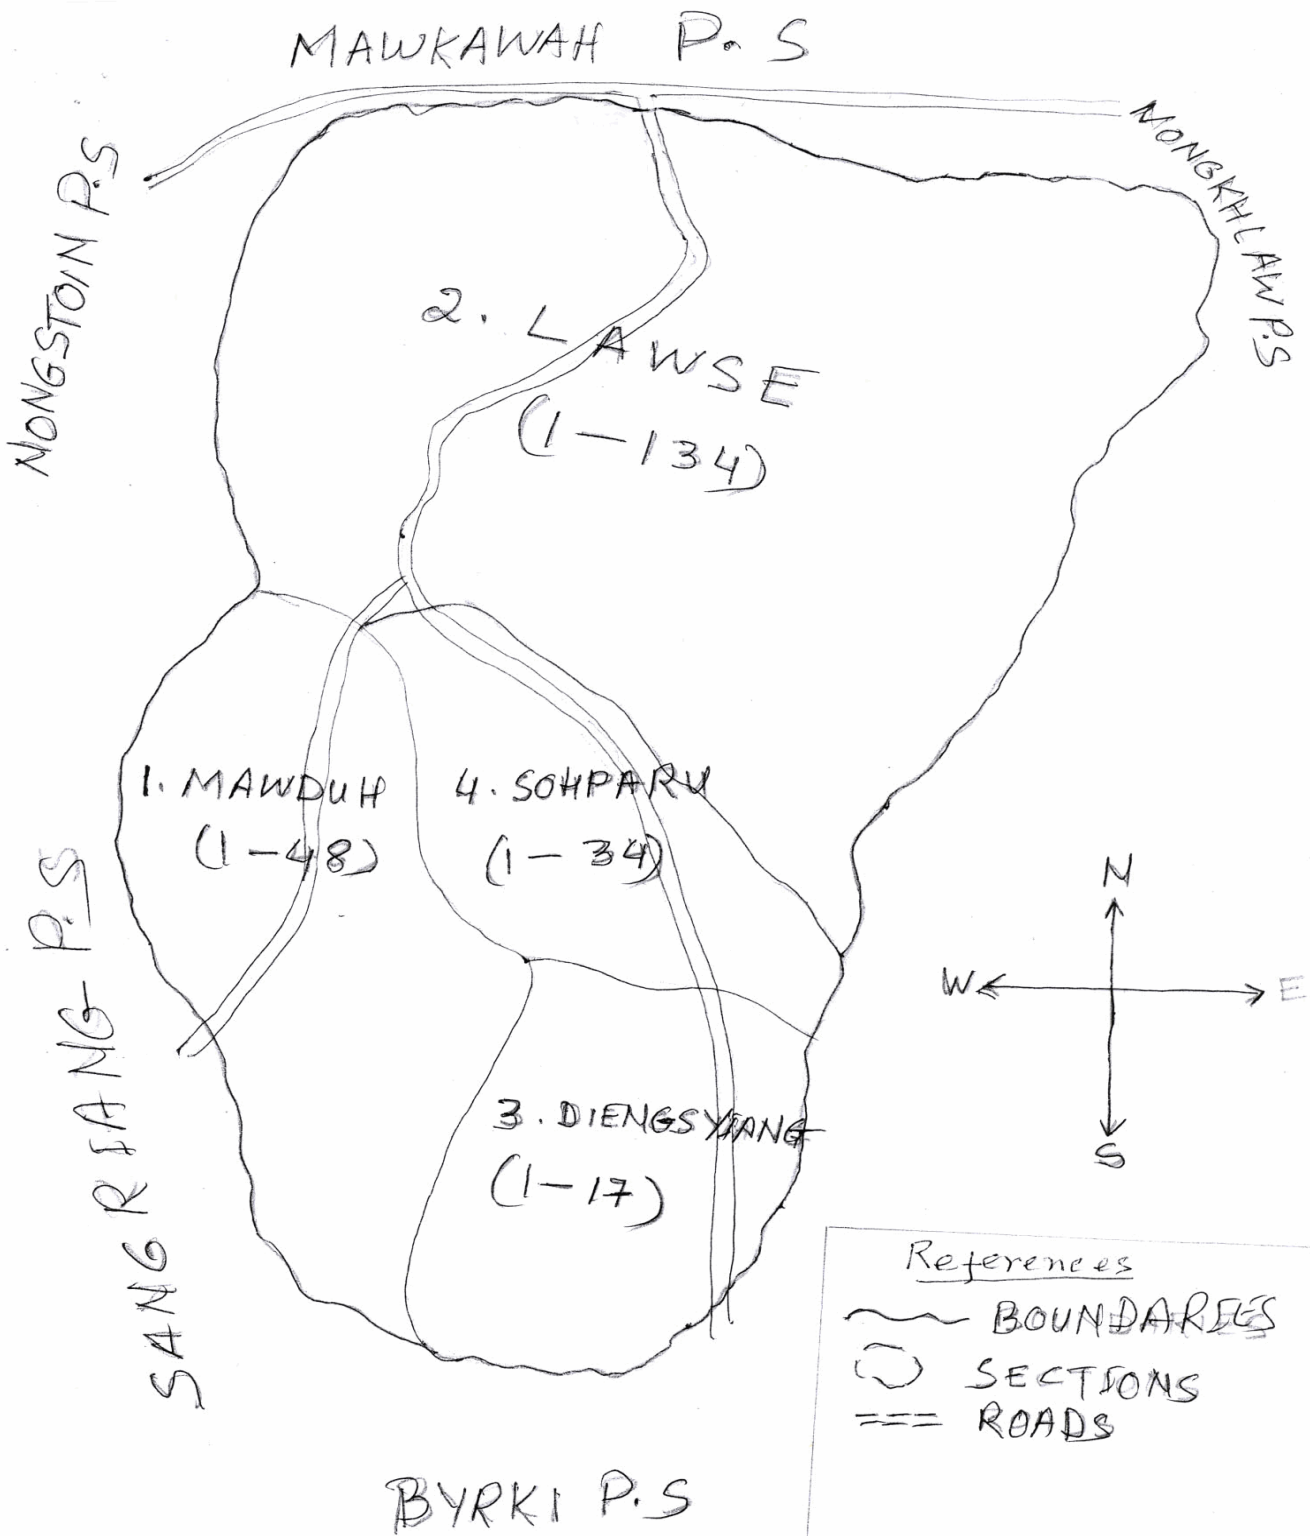 MAWKAWAH P.S
NONGKHLAW P.S
NONGSTOIN P.S
2. LAWSE
(1-134)
1. MAWDUH
(1-48)
4. SOHPARU
(1-34)
3. DIENGSYIANG
(1-17)
SANGRIANG P.S
N
W
E
S
References
BOUNDARIES
SECTIONS
ROADS
BYRKI P.S